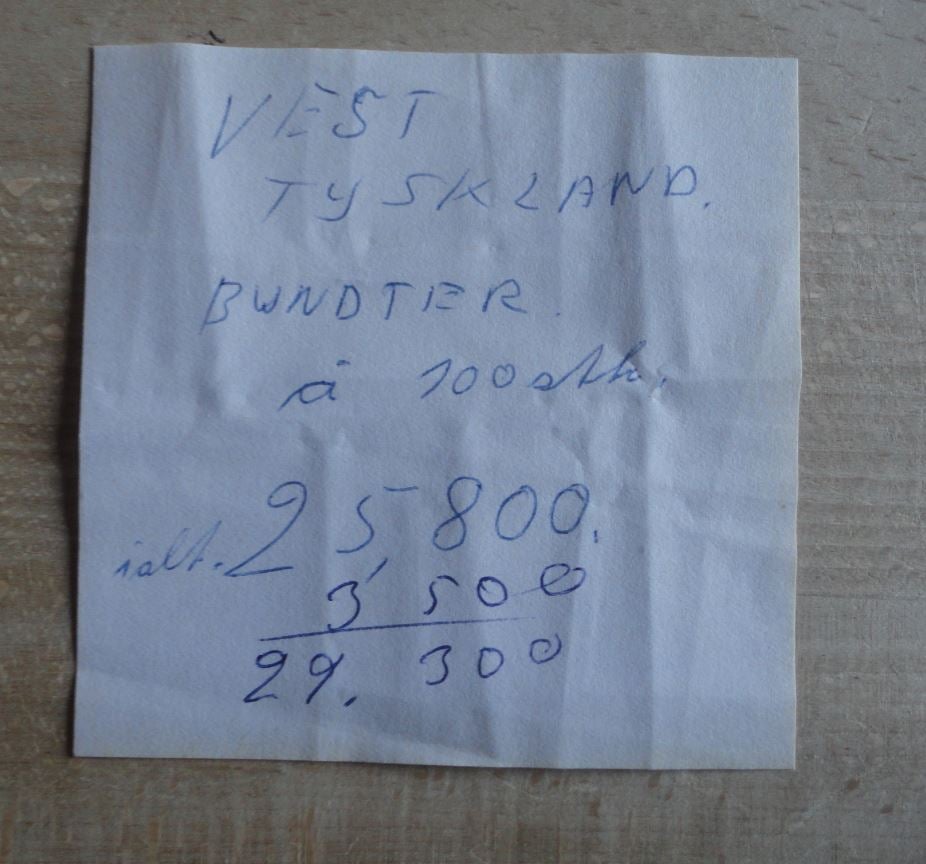 VEST
TYSKLAND.
BUNDTER.
á 100 stk.
ialt. 25,800.
3,500
29.300